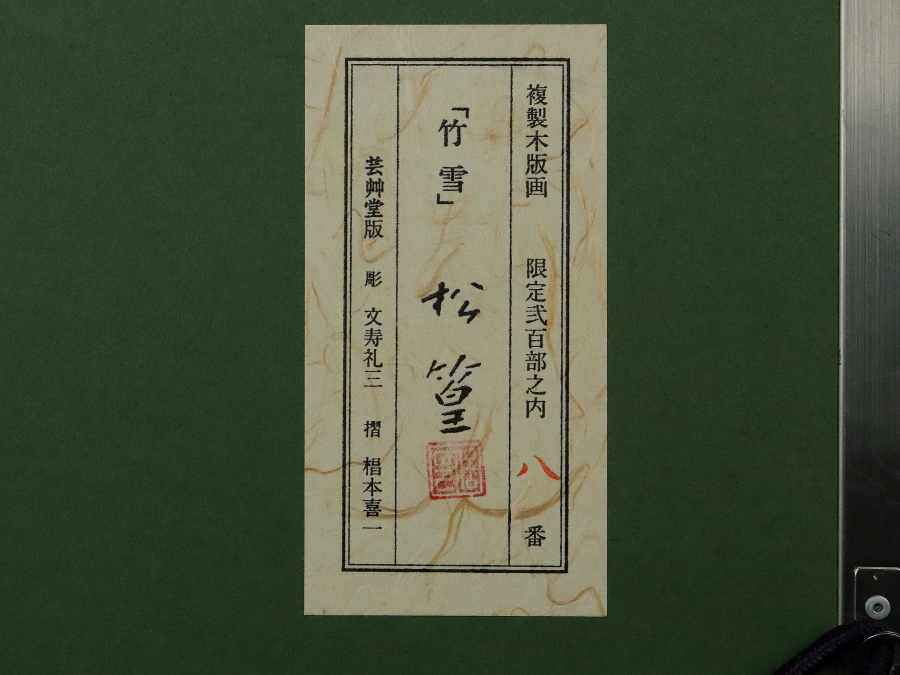 複製木版画 限定弐百部之内 八 番
「竹雪」 松篁
芸艸堂版 彫 文寿礼三 摺 椙本喜一